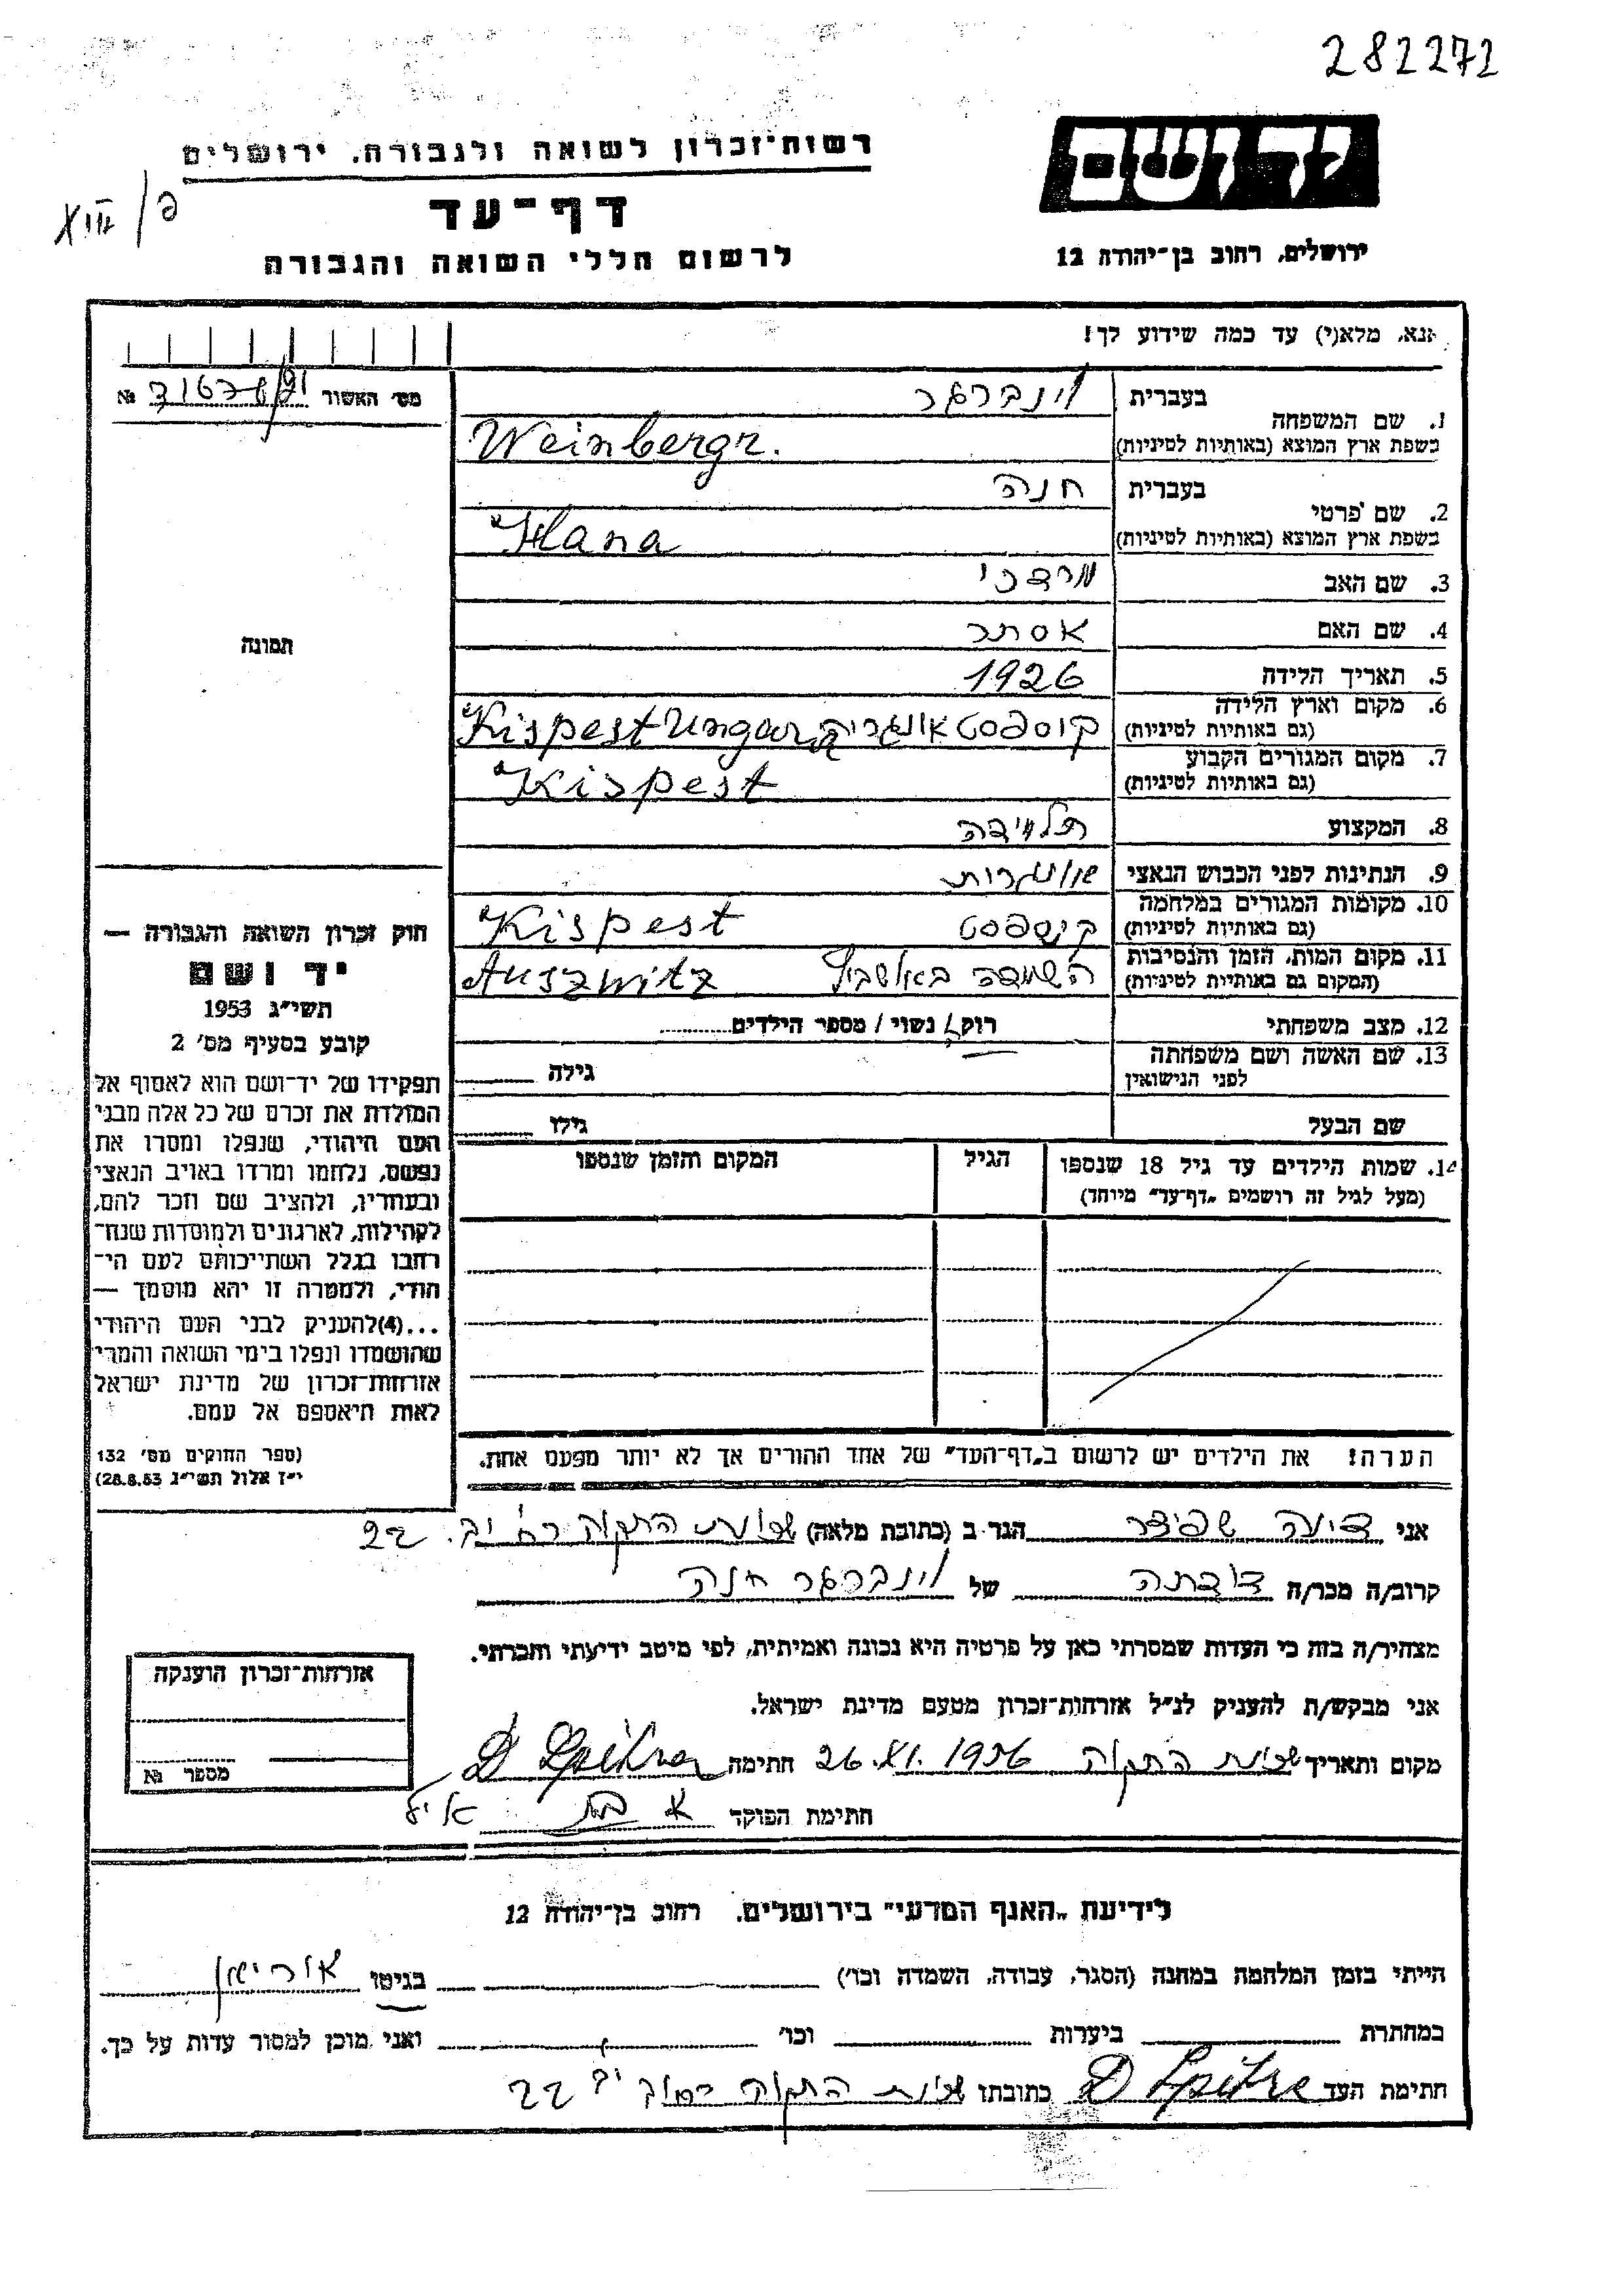 282272
יד ושם
רשות־זכרון לשואה ולגבורה. ירושלים
XIII/פ
דף־עד
ירושלים, רחוב בן־יהודה 12
לרשום חללי השואה והגבורה
אנא, מלא(י) עד כמה שידוע לך!
מס׳ האשור №
1. שם המשפחה
בעברית וינברגר
בשפת ארץ המוצא (באותיות לטיניות) Weinbergr.
2. שם פרטי
בעברית חנה
בשפת ארץ המוצא (באותיות לטיניות) Hana
3. שם האב מרדכי
4. שם האם אסתר
5. תאריך הלידה 1926
6. מקום וארץ הלידה
(גם באותיות לטיניות) קיספסט אונגריה Kispest Ungar
7. מקום המגורים הקבוע
(גם באותיות לטיניות) Kispest
8. המקצוע תלמידה
9. הנתינות לפני הכבוש הנאצי
10. מקומות המגורים במלחמה
(גם באותיות לטיניות) קיספסט Kispest
11. מקום המות, הזמן והנסיבות
(המקום גם באותיות לטיניות) השמדה Auszwitz
12. מצב משפחתי רוק/ נשוי / מספר הילדים
13. שם האשה ושם משפחתה
לפני הנישואין גילה
שם הבעל גילו
14. שמות הילדים עד גיל 18 שנספו הגיל המקום והזמן שנספו
(מעל לגיל זה רושמים „דף־עד״ מיוחד)
הערה! את הילדים יש לרשום ב„דף־העד״ של אחד ההורים אך לא יותר מפעם אחת.
תמונה
חוק זכרון השואה והגבורה —
יד ושם
תשי״ג 1953
קובע בסעיף מס׳ 2
תפקידו של יד־ושם הוא לאסוף אל
המולדת את זכרם של כל אלה מבני
העם היהודי, שנפלו ומסרו את
נפשם, נלחמו ומרדו באויב הנאצי
ובעוזריו, ולהציב שם וזכר להם,
לקהילות, לארגונים ולמוסדות שנח־
רבו בגלל השתייכותם לעם הי־
הודי, ולמטרה זו יהא מוסמך —
...(4)להעניק לבני העם היהודי
שהושמדו ונפלו בימי השואה והמרי
אזרחות־זכרון של מדינת ישראל
לאות היאספם אל עמם.
(ספר החוקים מס׳ 132
י״ז אלול תשי״ג 28.8.53)
אני שפיצר הגר ב (כתובת מלאה) שכונת התקוה רח׳ יב. 22
קרוב/ה מכר/ה דודתה של וינברגר חנה
מצהיר/ה בזה כי העדות שמסרתי כאן על פרטיה היא נכונה ואמיתית, לפי מיטב ידיעתי והכרתי.
אני מבקש/ת להעניק לנ״ל אזרחות־זכרון מטעם מדינת ישראל.
מקום ותאריך שכונת התקוה 26.XI.1956 חתימה D Spitzer
חתימת הפוקד
אזרחות־זכרון הוענקה
מספר №
לידיעת „האנף המדעי״ בירושלים. רחוב בן־יהודה 12
הייתי בזמן המלחמה במחנה (הסגר, עבודה, השמדה וכו׳) בגיטו
במחתרת ביערות וכו׳ ואני מוכן למסור עדות על כך.
חתימת העד D Spitzer כתובתו שכונת התקוה רחוב יב 22